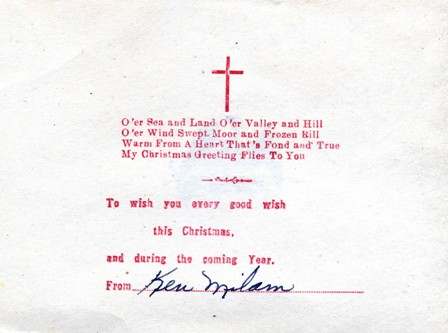 O'er Sea and Land O'er Valley and Hill
O'er Wind Swept Moor and Frozen Rill
Warm From A Heart That's Fond and True
My Christmas Greeting Flies To You
To wish you every good wish
this Christmas,
and during the coming Year.
From Ken Milam